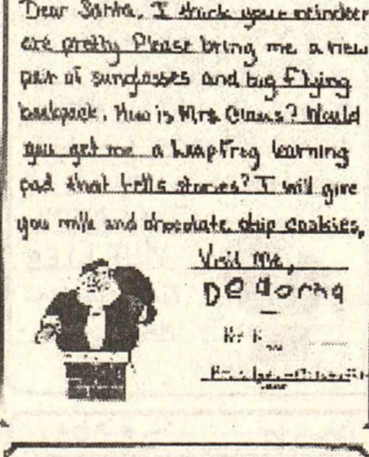 Dear Santa, I think your reindeer
are pretty Please bring me a new
pair of sunglasses and big flying
backpack. How is Mrs. Claus? Would
you get me a leapfrog learning
pad that tells stories? I will give
you milk and chocolate chip cookies,
Visit Me,